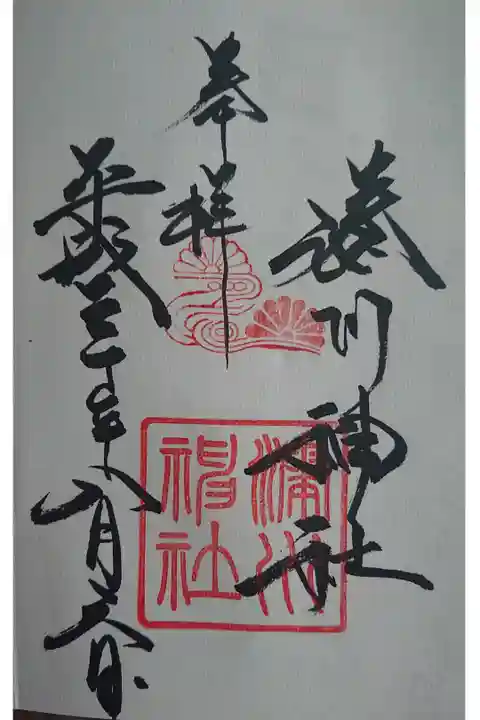 湊川神社
奉拝
平成三十年八月日
湊川
神社